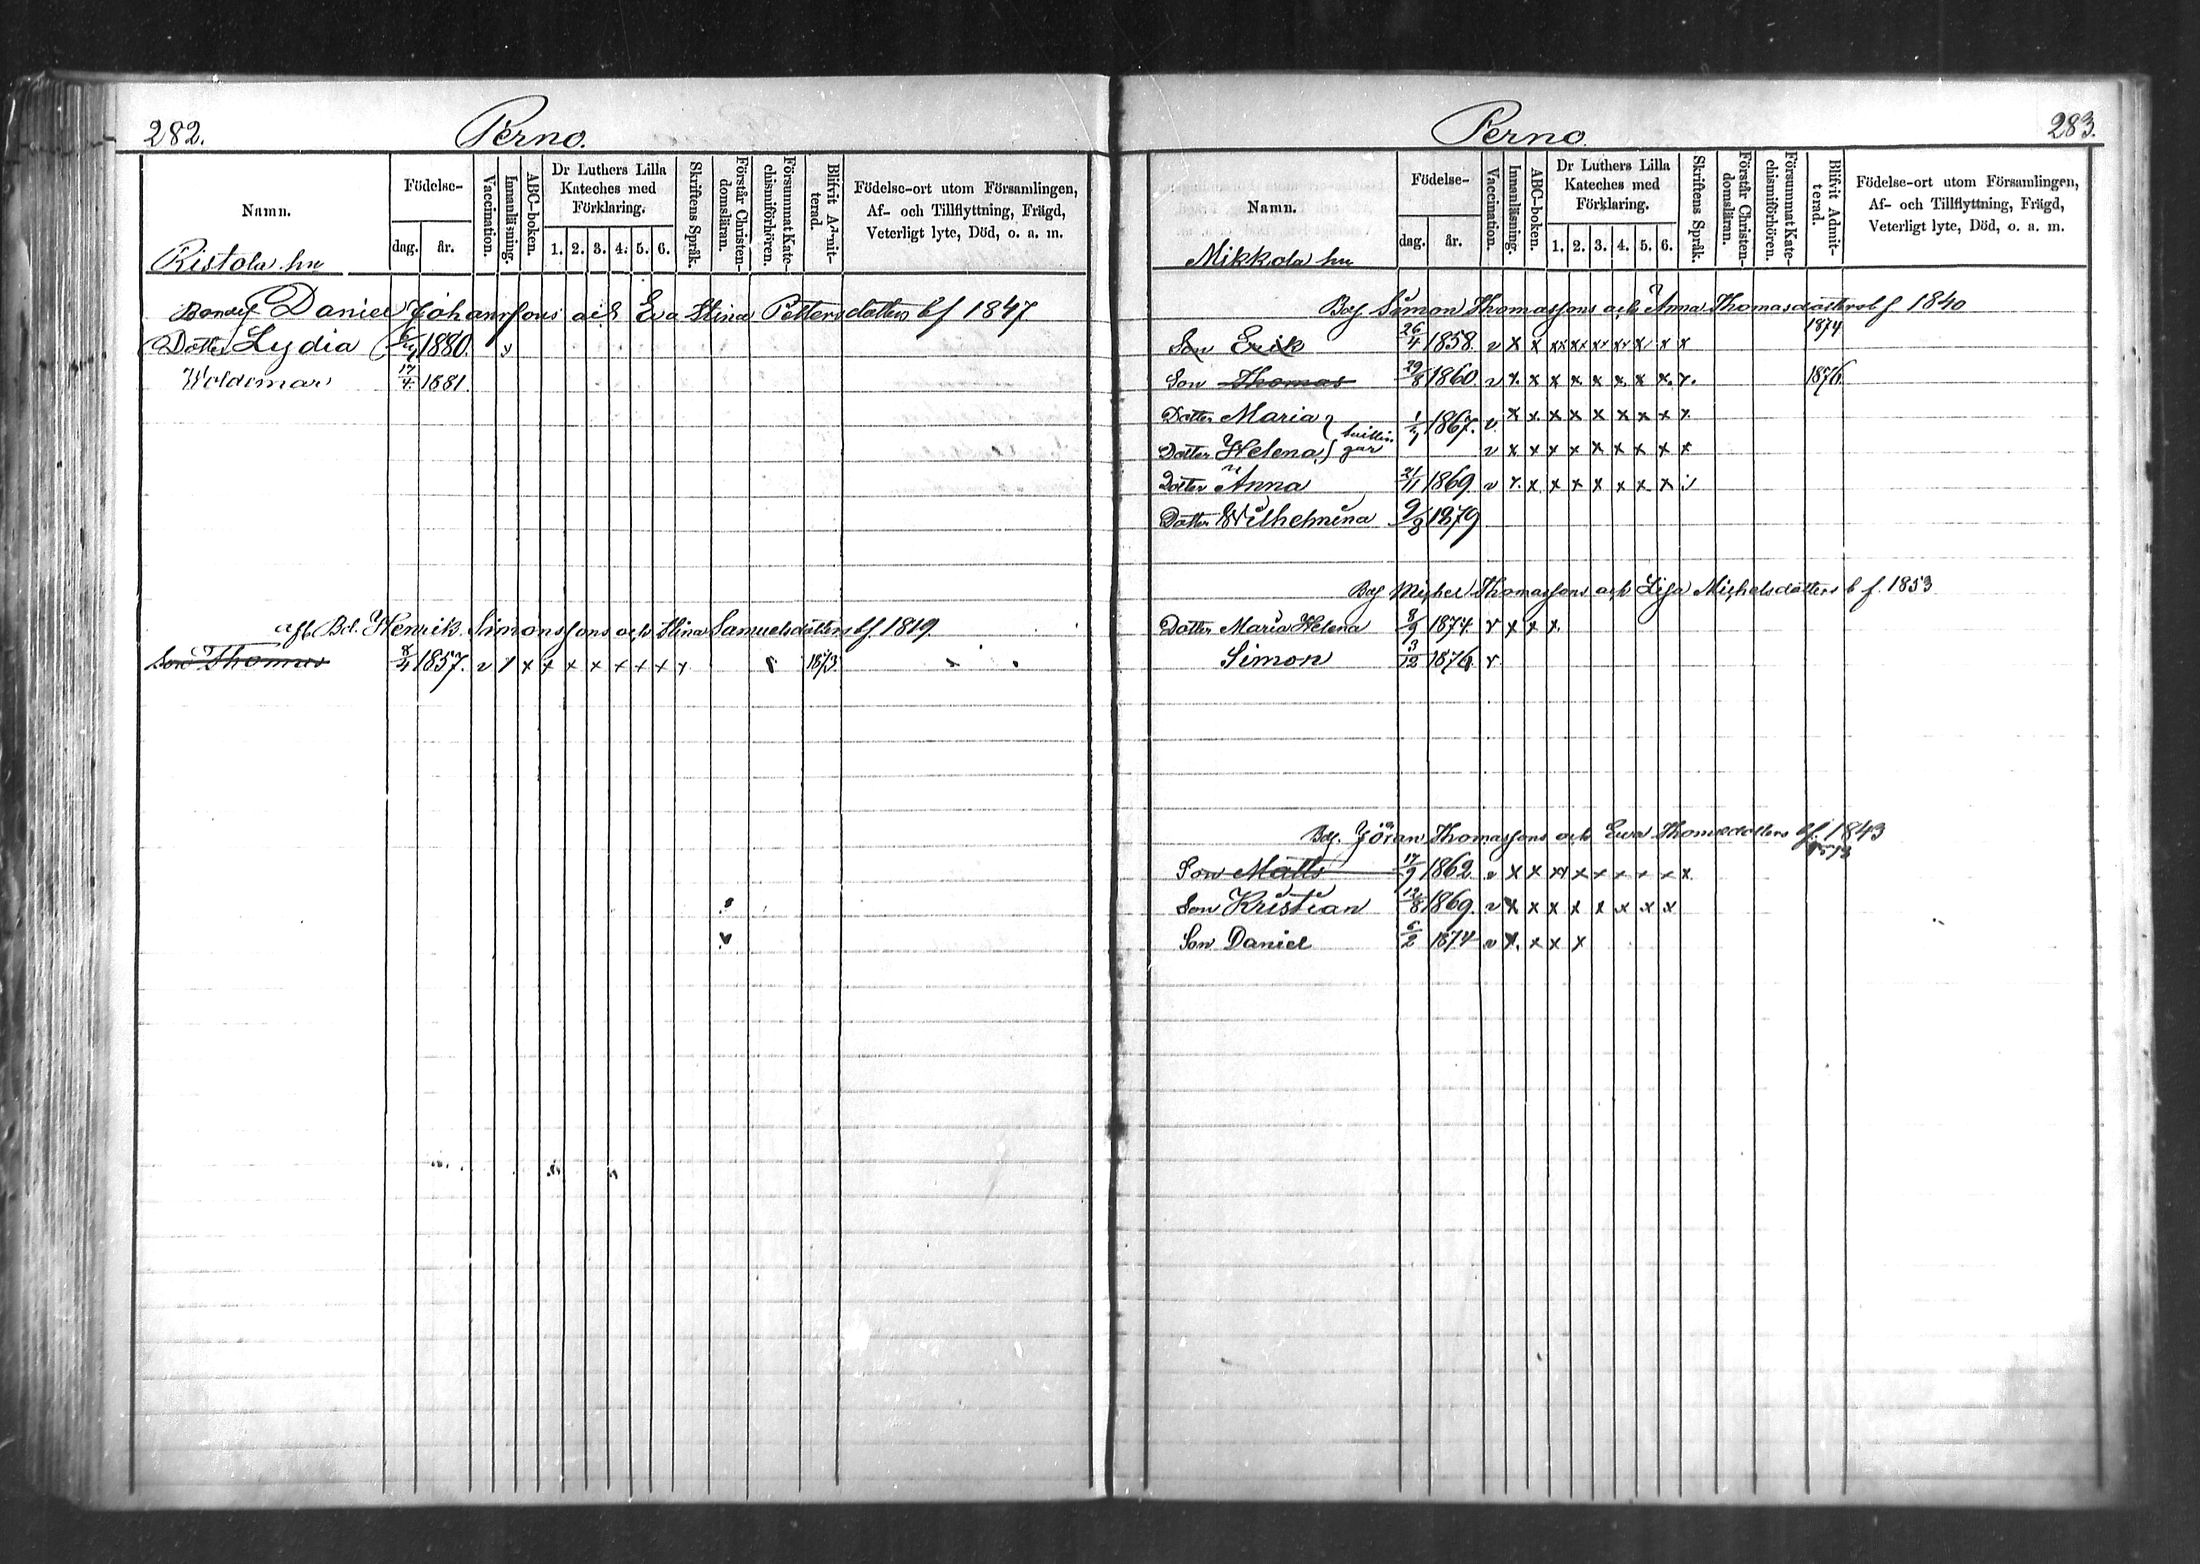 282.
Perno.
Namn.
Födelse-
dag. år.
Vaccination.
Innanläsning.
ABC-boken.
Dr Luthers Lilla
Kateches med
Förklaring.
1. 2. 3. 4. 5. 6.
Skriftens Språk.
Förstår Christen-
domsläran.
Försummat Kate-
chismiförhören.
Blifvit Admit-
terad.
Födelse-ort utom Församlingen,
Af- och Tillflyttning, Frägd,
Veterligt lyte, Död, o. a. m.
Ristola hn
Daniel Johanssons och Eva Stina Pettersdotters bf 1847
Dotter Lydia 1880. v
Woldemar 17/4 1881.
Henrik Simonssons och Stina Samuelsdotters bf. 1819.
Son Thomas 1857. v x x x x x x x x x 1873
283.
Perno.
Namn.
Födelse-
dag. år.
Vaccination.
Innanläsning.
ABC-boken.
Dr Luthers Lilla
Kateches med
Förklaring.
1. 2. 3. 4. 5. 6.
Skriftens Språk.
Förstår Christen-
domsläran.
Försummat Kate-
chismiförhören.
Blifvit Admit-
terad.
Födelse-ort utom Församlingen,
Af- och Tillflyttning, Frägd,
Veterligt lyte, Död, o. a. m.
Mikkola hn
Simon Thomassons och Anna Thomasdotters bf. 1840
Son Erik 26/4 1858. v x x xx xx xx xx x x x 1874
Son Thomas 29/8 1860 v x x x x x x x x x. 1876
Dotter Maria 1867. v x x x x x x x x x
Dotter Helena v x x x x x x x x x
Dotter Anna 21/11 1869 v x x x x x x x x
Dotter Wilhelmina 9/8 1879
Michel Thomassons och Lisa Michelsdotters bf. 1853
Dotter Maria Helena 8/9 1874 v x x x
Simon 3/12 1876 v
Jöran Thomassons och Ewa Thomasdotters bf. 1843
Son Matts 17/9 1862 v x x xx x x x x x x
Son Kristian 12/8 1869 v x x x x x x x x
Son Daniel 6/2 1874 v x x x x